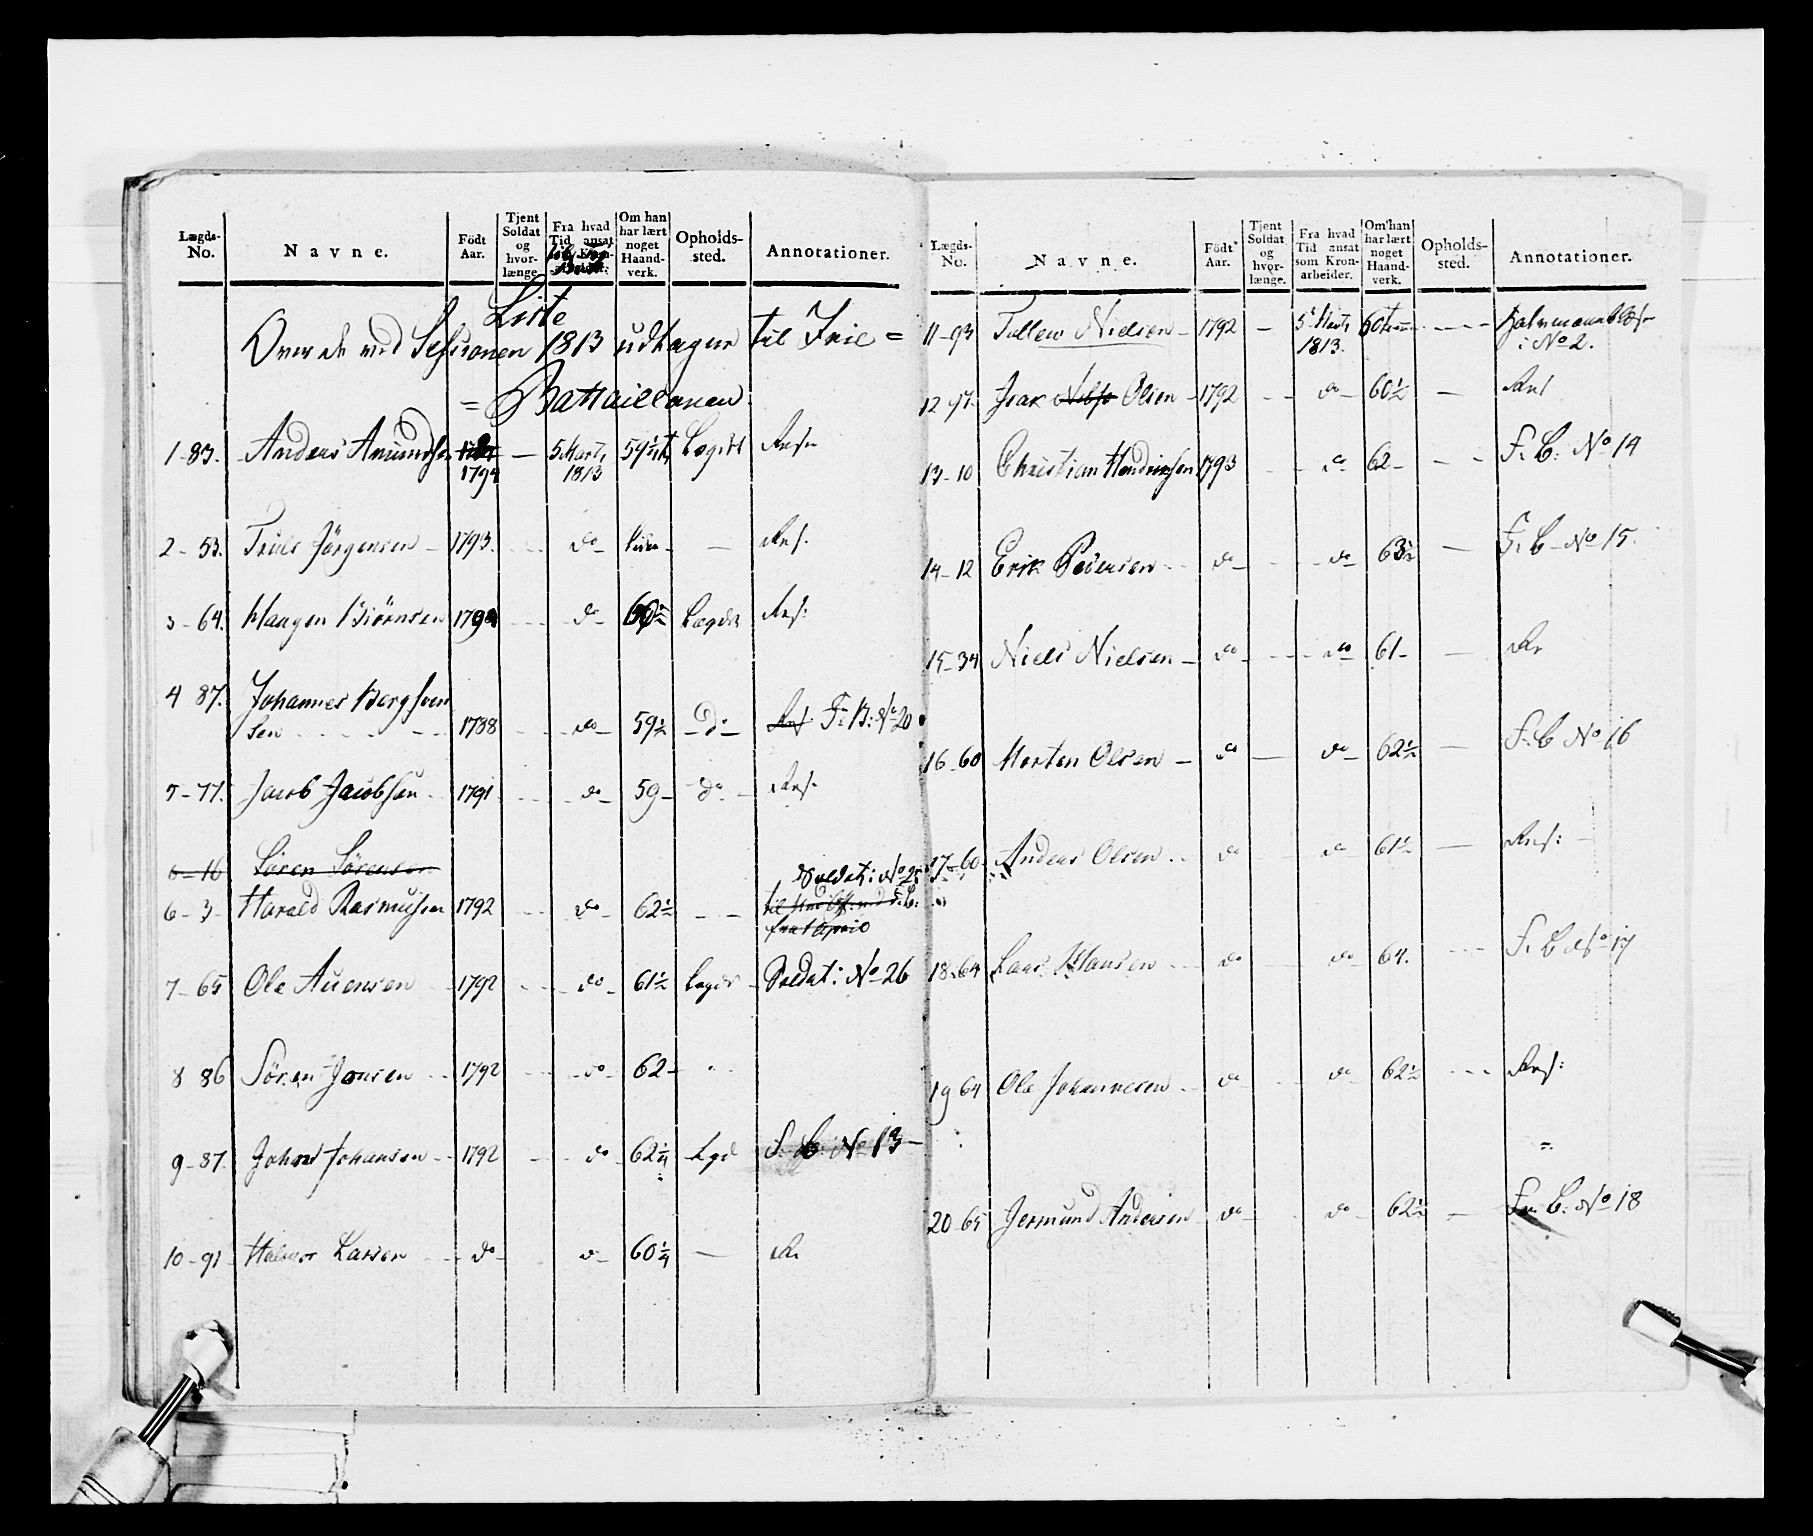 Lægds-No. Navne. Födt Aar. Tjent Soldat og hvor-længe. Fra hvad Tid ansat Om han har lært noget Haand-verk. Opholds-sted. Annotationer.
Liste
Over de ved Sessionen 1813 udtagne til Frie =
= Battaillonen
1-83. Anders Amundsen 1794 — 5 Marti 1813 59½ t. Lægdet Ans:
2-53. Truls Jörgensen - 1793. do - Ans:
3-64. Haagen Biörnsen do - Lægdet Ans:
4 87. Johannes Bergsven
sen 1788 do - 59½ - do - F: B: No 20
5-77. Jacob Jacobsen 1791 do - 59 - do - Ans:
6-16 Sören Sörensen
6-3- Harald Rasmussen 1792 do - 62½ - - Soldat: No 25
7-65 Ole Auensen 1792 do - 61½ Lægdet Soldat: No 26
8 86 Sören Jansen 1792 do - 62-
9-87. Johans Johansen 1792 do - 62¼ Lgd F. B. No 13 -
10-91 Halvor Larsen do - do - 60¼ — An
Lægds-No. Navne. Födt Aar. Tjent Soldat og hvor-længe. Fra hvad Tid ansat som Kron-arbeider. Om han har lært noget Haand-verk. Opholds-sted. Annotationer.
11-93 Tollew Nielsen - 1792 — 5' Marti 60
1813. i No 2.
12-97. Isak Olsen 1792 do - 60½ — Ans
13-10 Christian Hendrichsen 1793 do 62 - F. B: No 14
14-12 Erik Pedersen do - do - 63½ — F. B - No 15.
15-34 Niels Nielsen - do - do 61 - — An
16-60 Morten Olsen - do — do - 62½ — F. B No 16
17-60 Anders Olsen do do 61½ — Ans: -
18-64 Lars Hansen do do 64. F. B No 17
19 64 Ole Johannesen do do - 62½ Ans:
20 65 Jermund Andersen do - do - 62½ - Fr. B: No 18